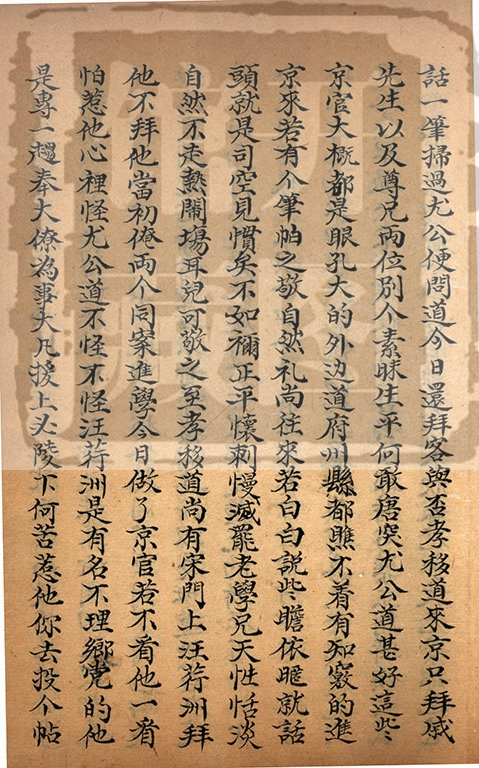 話一筆掃過尤公便問道今日還拜客與否孝移道來京只拜戚
先生以及尊兄兩位別个素昧生平何敢唐突尤公道甚好這些
京官大概都是眼孔大的外边道府州縣都瞧不着有知竅的進
京來若有个筆帕之敬自然礼尚往來若白白說些瞻依暱就話
頭就是司空見慣矣不如禰正平懷刺慢滅罷老學兄天性恬淡
自然不走熱鬧場耳兒可敬之至孝移道尚有宋門上汪荇洲拜
他不拜他當初俺兩个同案進學今日做了京官若不看他一看
怕惹他心裡怪尤公道不怪不怪汪荇洲是有名不理鄉党的他
是專一趨奉大僚為事大凡援上必陵下何苦惹他你去投个帖